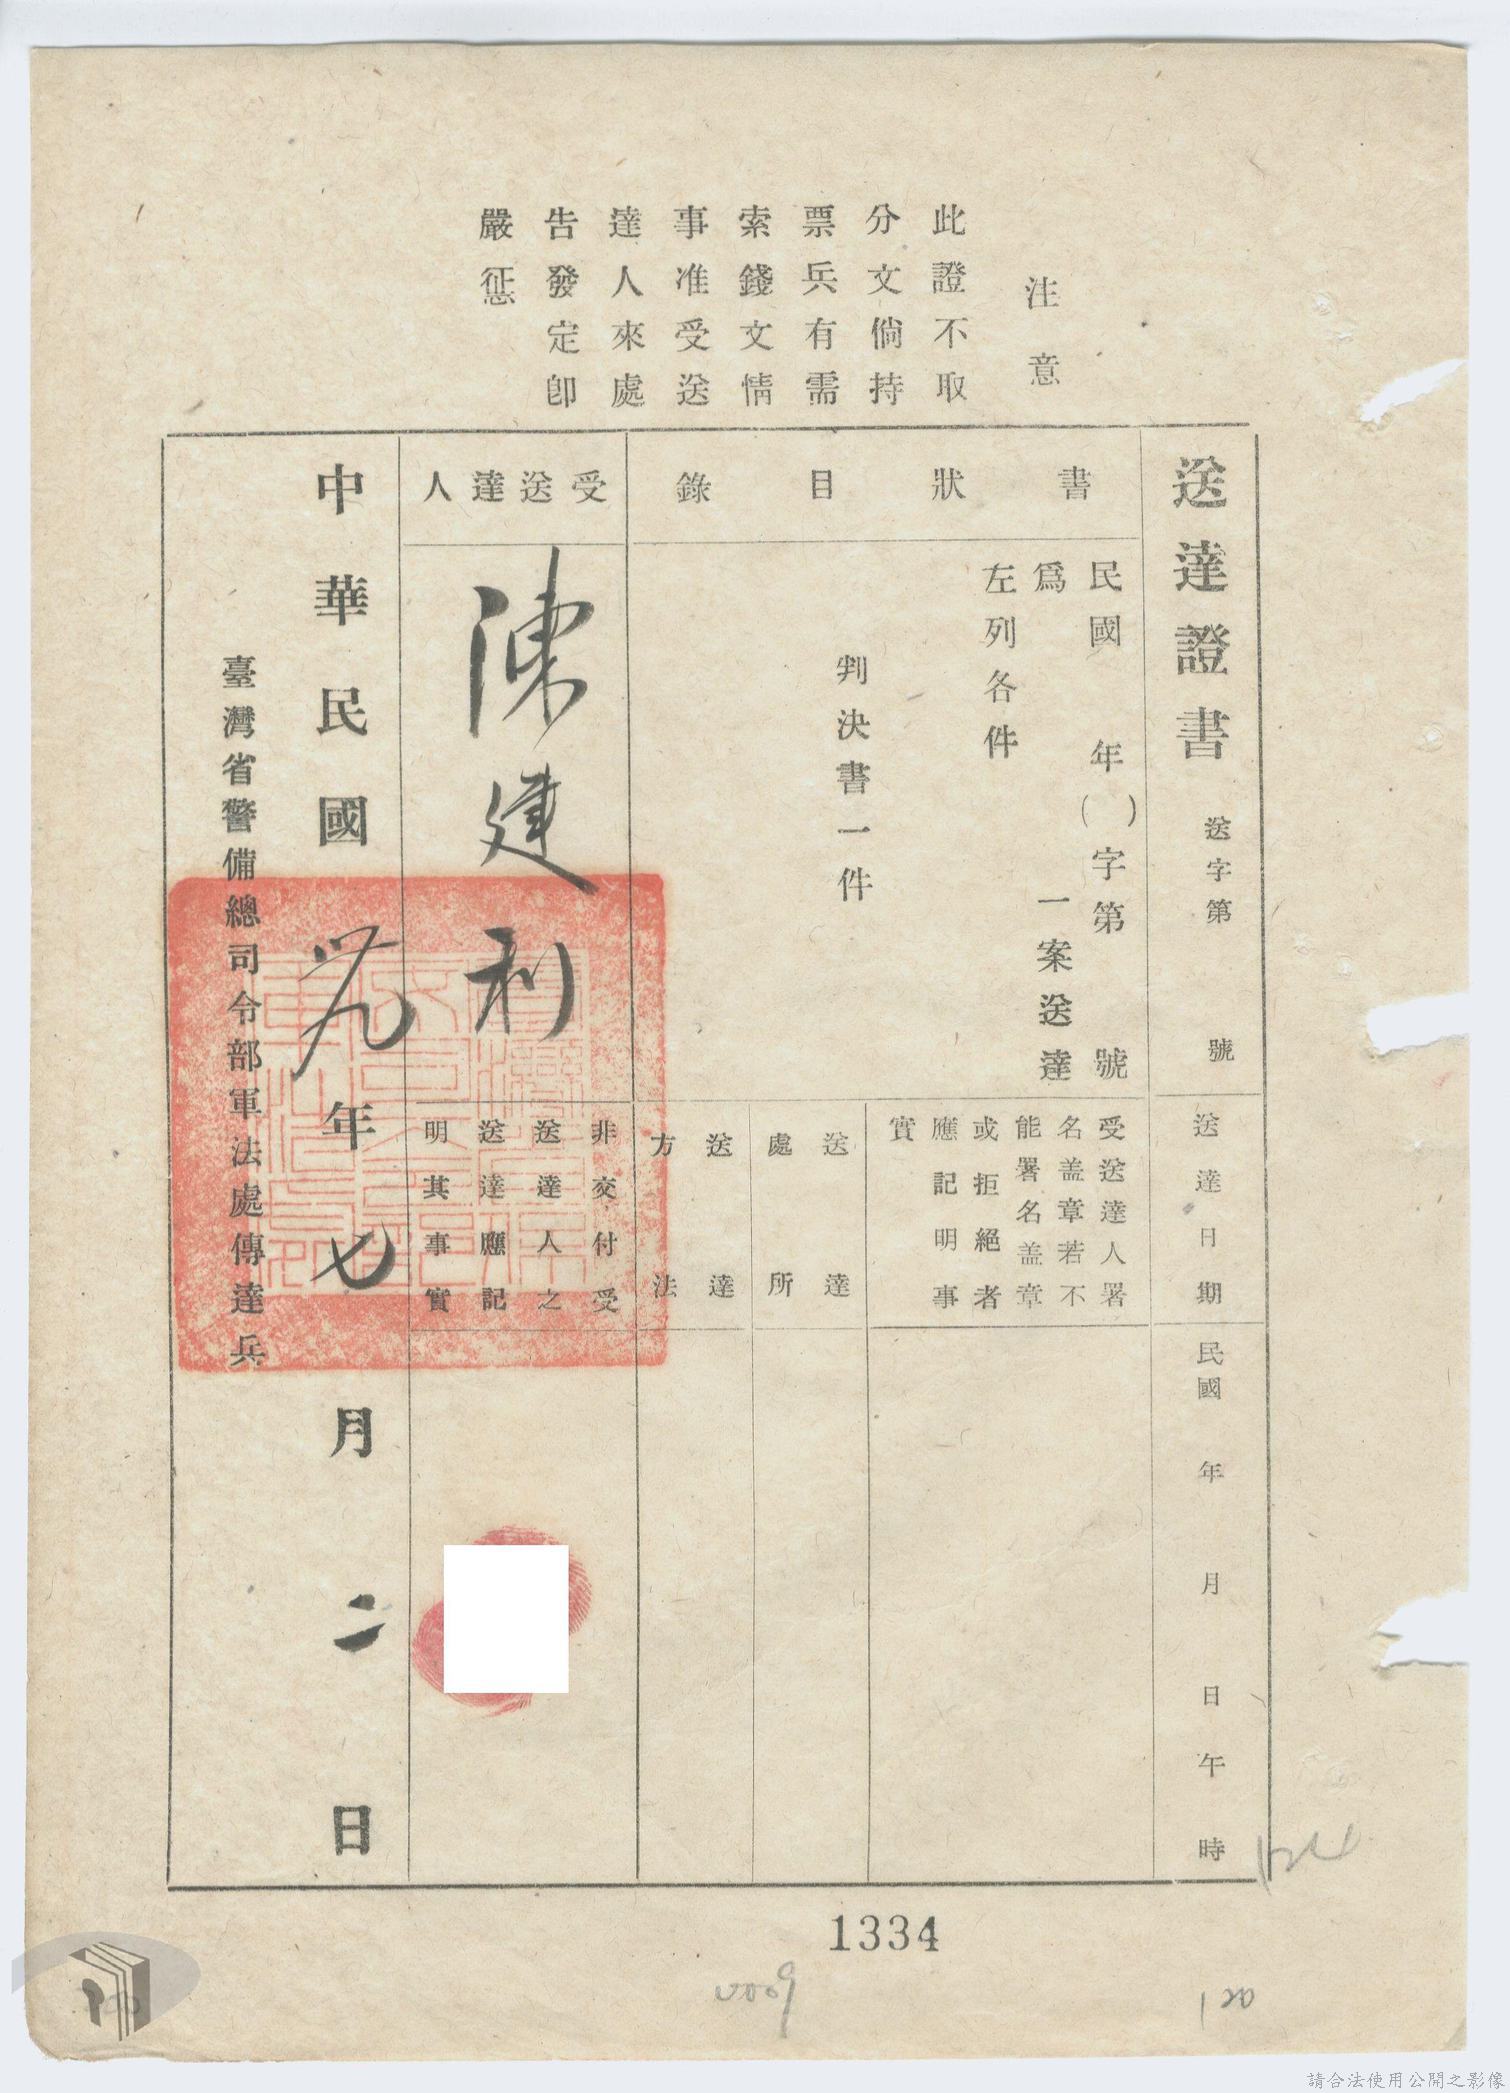 注意
此證不取
分文倘持
票兵有需
索錢文情
事准受送
達人來處
告發定卽
嚴懲
送達證書
送字第
號
送達日期
民國年月日午時
書狀目錄
民國年()字第號
爲一案送達
左列各件
判決書一件
受送達人署
名盖章若不
能署名盖章
或拒絕者
應記明事
實
送達
處所
送達
方法
受送達人
陳建利
非交付受
送達人之
送達應記
明其事實
中華民國卅九年七月二日
臺灣省警備總司令部軍法處傳達兵
1334
0009
120
124
請合法使用公開之影像